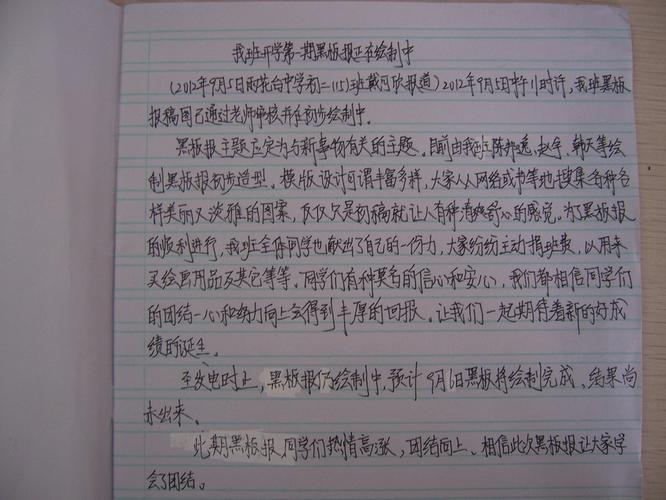 我班开学第一期黑板报正在绘制中
(2012年9月5日雨花台中学初二(15)班戴可欣报道)2012年9月5日中午11时许,我班黑板
报稿图已通过老师审核并在初步绘制中。
黑板报主题应定为与新事物有关的主题。目前由我班陈邦逸、赵宇、韩天等绘
制黑板报初步造型。模版设计可谓丰富多样,大家从网络或书等地搜集各种各
样美丽又淡雅的图案,仅仅只是初稿就让人有种清爽舒心的感觉。为了黑板报
的顺利进行,我班全体同学也献出了自己的一份力,大家纷纷主动捐班费,以用来
买绘画用品及其它等等。同学们有种莫名的信心和安心,我们都相信同学们
的团结一心和努力向上会得到丰厚的回报。让我们一起期待着新的好成
绩的诞生。
至发电时止,黑板报仍绘制中,预计9月6日黑板将绘制完成,结果尚
未出来。
此期黑板报同学们热情高涨,团结向上。相信此次黑板报让大家学
会了团结。